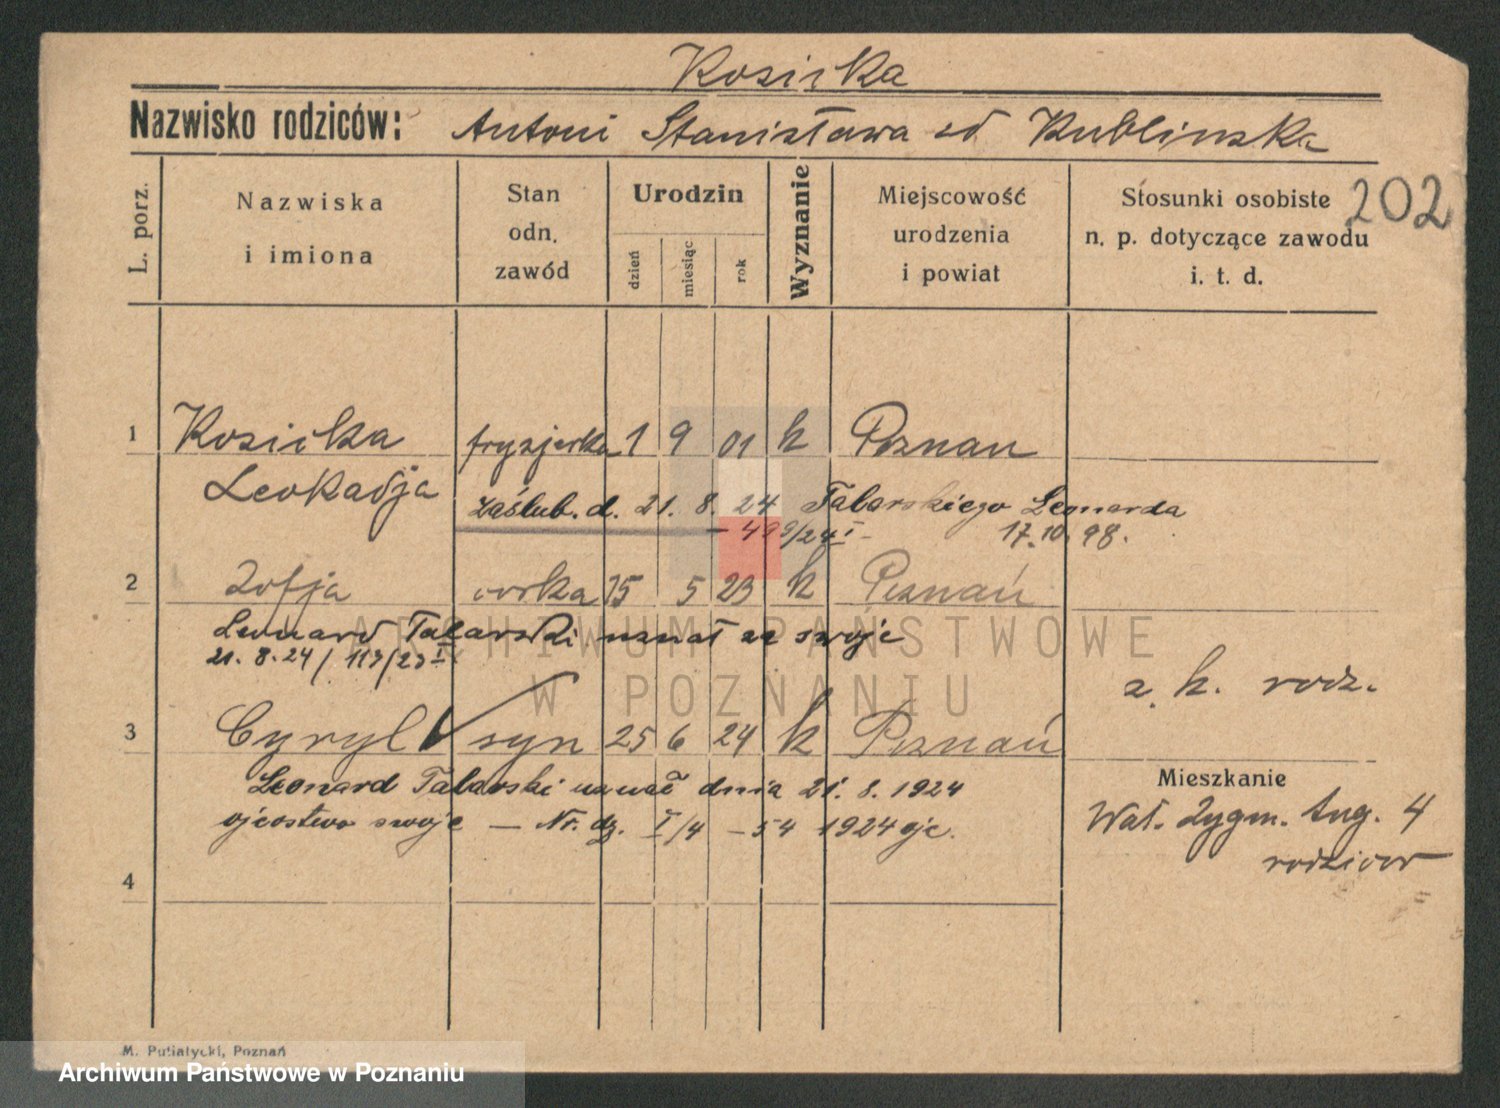 Kosicka
Nazwisko rodziców: Antoni Stanisława zd Kublinska
L. porz.
Nazwiska
i imiona
Stan
odn.
zawód
Urodzin
dzień
miesiąc
rok
Wyznanie
Miejscowość
urodzenia
i powiat
Stosunki osobiste
n. p. dotyczące zawodu
i. t. d.
202
1 Kosicka fryzjerka 1 9 01 k Poznan
Leokadja
zaślub. d. 21. 8. 24 Talarskiego Leonarda
499/24 I - 17.10.98.
2 Zofja corka 15 5 23 k Poznań
Leonard Talarski uznał za swoje
21. 8. 24 / 113/23 I
z. k. rodz.
3 Cyryl syn 25 6 24 k Poznań
Leonard Talarski uznał dnia 21. 8. 1924
ojcostwo swoje — Nr. dz. I/4 - 54 1924
Mieszkanie
Wał. Zygm. Aug. 4
rodzicow
4
M. Putiatycki, Poznań
ARCHIWUM PAŃSTWOWE
W POZNANIU
Archiwum Państwowe w Poznaniu